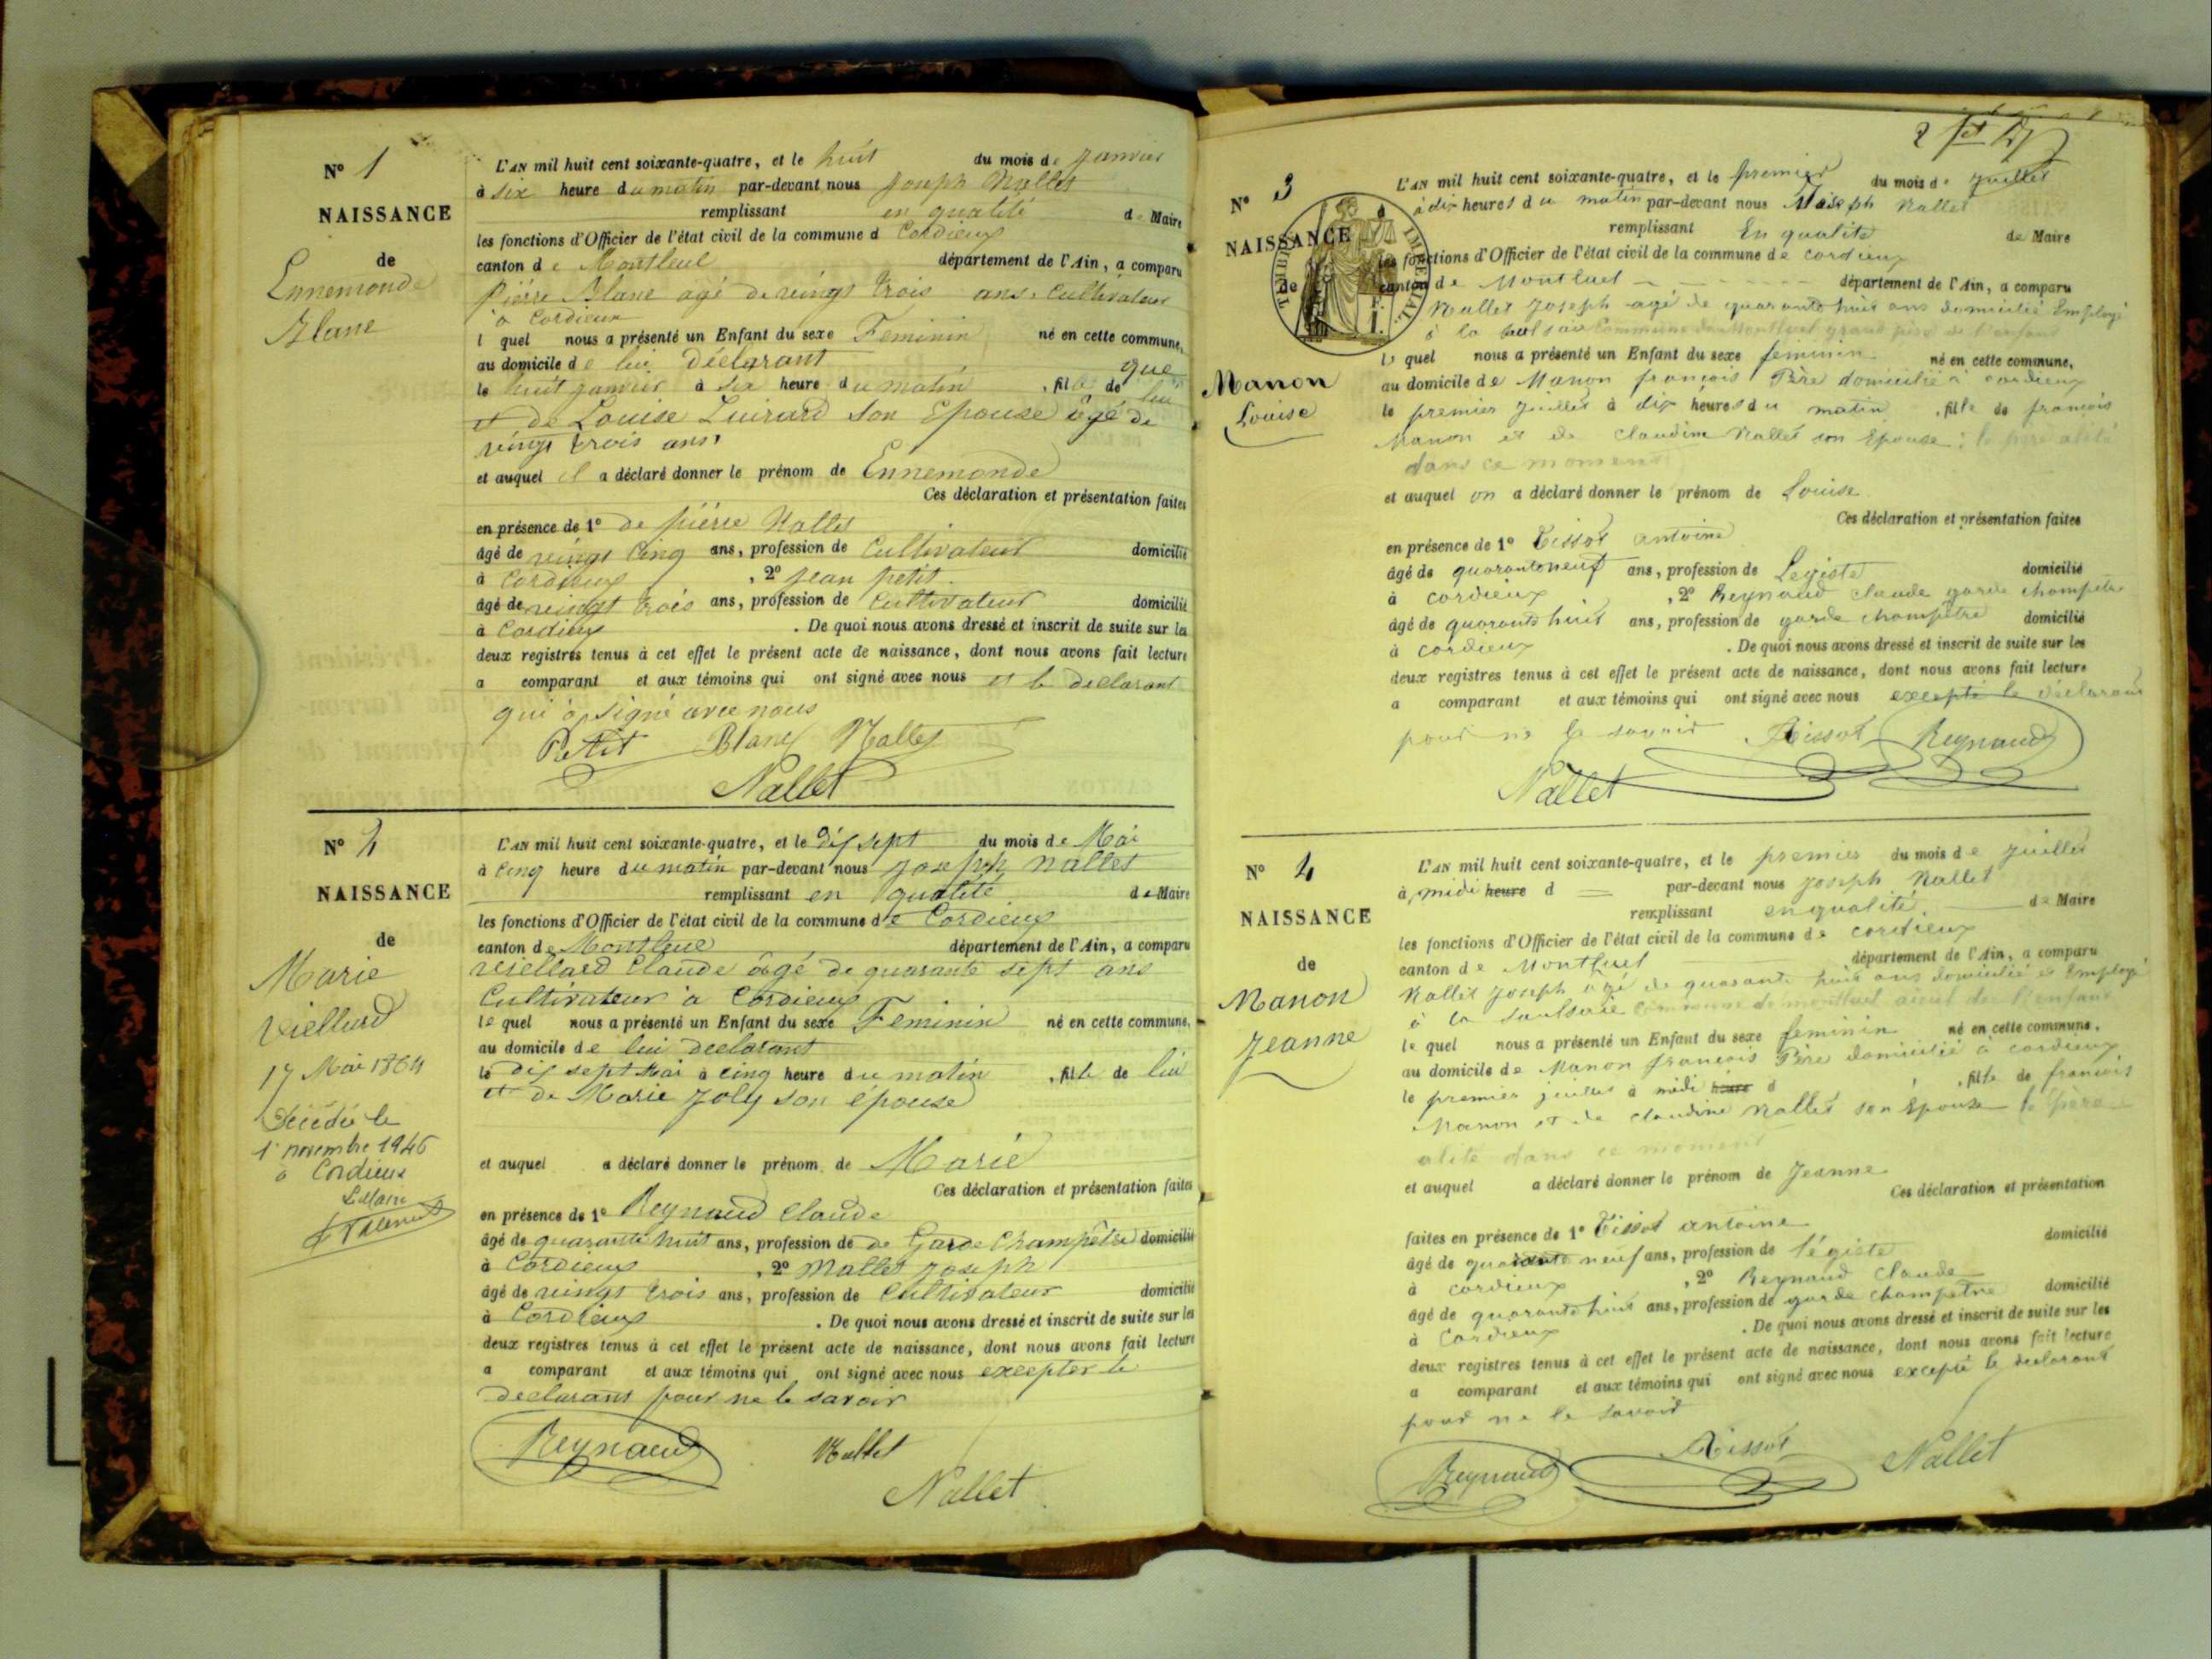 N° 1
NAISSANCE
de
Ennemonde
Blanc
L'AN mil huit cent soixante-quatre, et le huit du mois de Janvier
à six heure du matin par-devant nous Joseph Nallet
remplissant en qualité de Maire
les fonctions d'Officier de l'état civil de la commune d Cordieux
canton de Montluel département de l'Ain, a comparu
Pierre Blanc agé de vingt trois ans, Cultivateur
à Cordieux
l quel nous a présenté un Enfant du sexe Feminin né en cette commune,
au domicile de lui déclarant que
le huit janvier à six heure du matin , fille de lui
et de Louise Luirard son Epouse âgé de
vingt trois ans,
et auquel il a déclaré donner le prénom de Ennemonde
Ces déclaration et présentation faites
en présence de 1° de pierre Nallet
âgé de vingt cinq ans, profession de Cultivateur domicilié
à Cordieux , 2° Jean petit
âgé de vingt trois ans, profession de Cultivateur domicilié
à Cordieux . De quoi nous avons dressé et inscrit de suite sur les
deux registres tenus à cet effet le présent acte de naissance, dont nous avons fait lecture
a comparant et aux témoins qui ont signé avec nous et le déclarant
qui a signé avec nous
Petit Blanc Nallet
Nallet
N° 2
NAISSANCE
de
Marie
Viellard
17 Mai 1864
Décédée le
1 novembre 1946
à Cordieux
Le Maire
L'AN mil huit cent soixante-quatre, et le dix sept du mois de Mai
à cinq heure du matin par-devant nous Joseph Nallet
remplissant en qualité de Maire
les fonctions d'Officier de l'état civil de la commune de Cordieux
canton de Montluel département de l'Ain, a comparu
Viellard Claude âgé de quarante sept ans
Cultivateur à Cordieux
le quel nous a présenté un Enfant du sexe Feminin né en cette commune,
au domicile de lui declarant
le dix sept Mai à cinq heure du matin , fille de lui
et de Marie Joly son épouse
et auquel a déclaré donner le prénom de Marie
Ces déclaration et présentation faites
en présence de 1° Reynaud Claude
âgé de quarante huit ans, profession de de Garde Champêtre domicilié
à Cordieux , 2° Nallet Joseph
âgé de vingt trois ans, profession de Cultivateur domicilié
à Cordieux . De quoi nous avons dressé et inscrit de suite sur les
deux registres tenus à cet effet le présent acte de naissance, dont nous avons fait lecture
a comparant et aux témoins qui ont signé avec nous excepter le
declarant pour ne le savoir
Reynaud Nallet
Nallet
N° 3
NAISSANCE
de
TIMBRE IMPERIAL
Manon
Louise
L'AN mil huit cent soixante-quatre, et le premier du mois de Juillet
à dix heures du matin par-devant nous Joseph Nallet
remplissant En qualité de Maire
les fonctions d'Officier de l'état civil de la commune de Cordieux
canton de Montluel département de l'Ain, a comparu
Nallet Joseph agé de quarante huit ans domicilié Employé
à la commune de Montluel grand père de l'enfant
le quel nous a présenté un Enfant du sexe feminin né en cette commune,
au domicile de Manon françois Père domicilié à cordieux
le premier Juillet à dix heures du matin , fille de françois
Manon et de claudine Nallet son Epouse ; le père alité
dans ce moment
et auquel on a déclaré donner le prénom de Louise
Ces déclaration et présentation faites
en présence de 1° Tissot antoine
âgé de quarante neuf ans, profession de Legiste domicilié
à cordieux , 2° Reynaud Claude garde champêtre
âgé de quarante huit ans, profession de garde champêtre domicilié
à cordieux . De quoi nous avons dressé et inscrit de suite sur les
deux registres tenus à cet effet le présent acte de naissance, dont nous avons fait lecture
a comparant et aux témoins qui ont signé avec nous excepté le déclarant
pour ne le savoir Tissot Reynaud
Nallet
N° 4
NAISSANCE
de
Manon
Jeanne
L'AN mil huit cent soixante-quatre, et le premier du mois de Juillet
à midi heure d par-devant nous Joseph Nallet
remplissant en qualité de Maire
les fonctions d'Officier de l'état civil de la commune de cordieux
canton de Montluel département de l'Ain, a comparu
Nallet Joseph agé de quarante huit ans domicilié et Employé
à la Saulsaie commune de montluel aieul de l'enfant
le quel nous a présenté un Enfant du sexe feminin né en cette commune,
au domicile de Manon françois Père domicilié à cordieux
le premier juillet à midi heure d , fille de françois
Manon et de claudine Nallet son Epouse le père
alité dans ce moment
et auquel a déclaré donner le prénom de Jeanne
Ces déclaration et présentation
faites en présence de 1° Tissot antoine
âgé de quarante neuf ans, profession de légiste domicilié
à cordieux , 2° Reynaud Claude
âgé de quarante huit ans, profession de garde champetre domicilié
à Cordieux . De quoi nous avons dressé et inscrit de suite sur les
deux registres tenus à cet effet le présent acte de naissance, dont nous avons fait lecture
a comparant et aux témoins qui ont signé avec nous excepté le declarant
pour ne le savoir
Reynaud Tissot Nallet